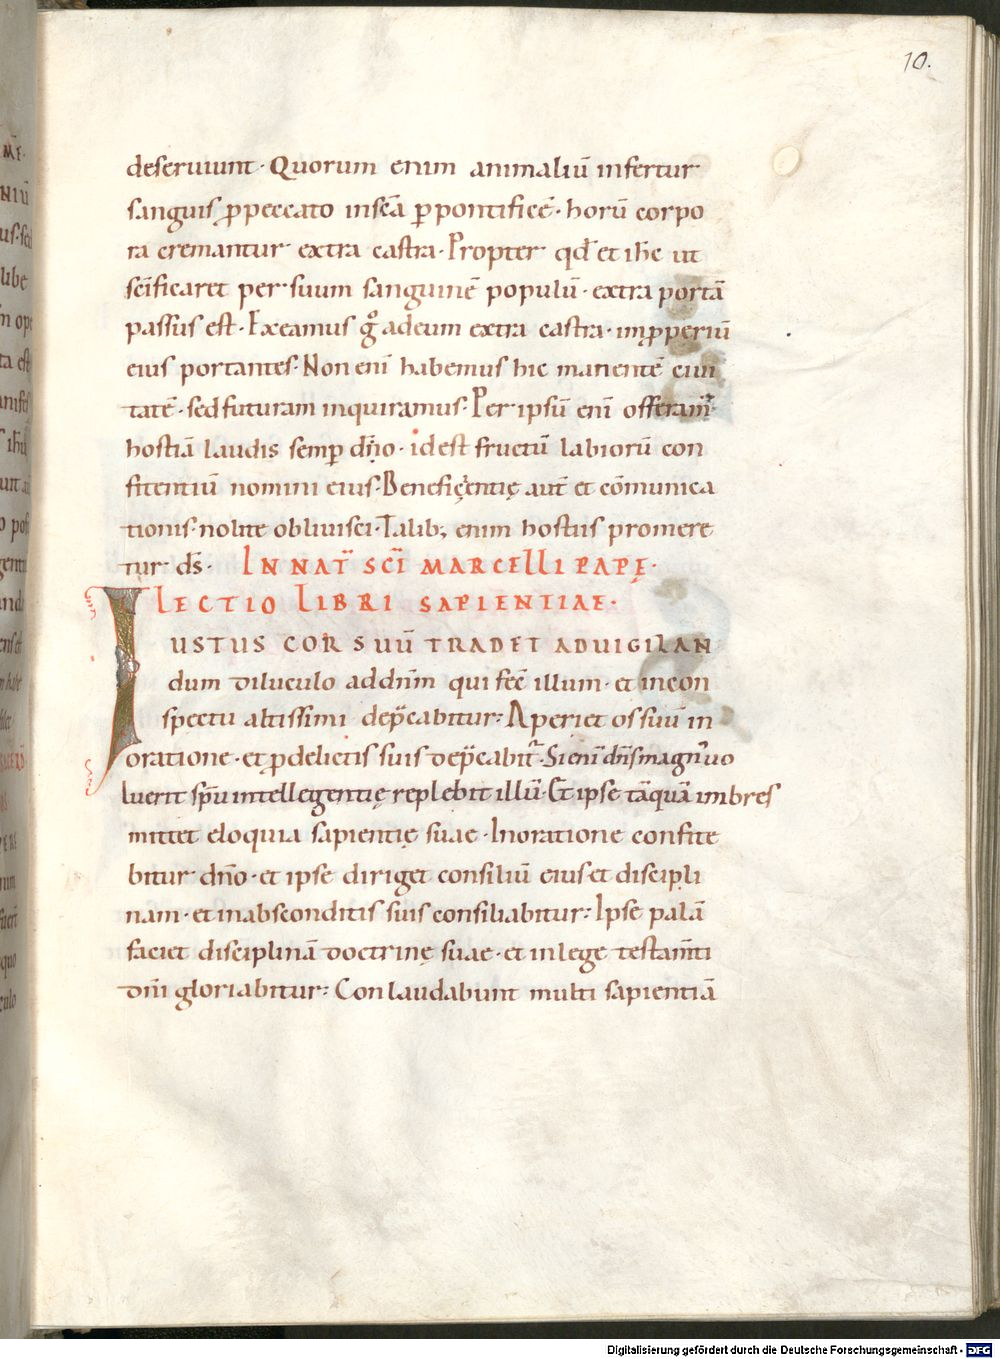 10.
deseruiunt · Quorum enim animaliū infertur
sanguis p̱peccato insc̄a p̱pontificē · horū corpo
ra cremantur extra castra · Propter qđ et ihc̄ ut
sc̄ificaret per suum sanguinē populū · extra portā
passus est · Exeamus gͦ adeum extra castra · inproperiū
eius portantes · Non eni̅ habemus hic manentē ciui
tatē · sed futuram inquiramus · Per ipsū eni̅ offeram̄
hostiā laudis semp̱ dn̄o · idest fructū labiorū con
fitentiū nomini eius · Beneficentię aut̄ et cōmunica
tionis · nolite obliuisci · Talib; enim hostiis promere
tur ds̄ · IN NAT̄ SC̄I MARCELLI PAPĘ ·
LECTIO LIBRI SAPIENTIAE ·
IUSTUS COR SUŪ TRADET ADUIGILAN
dum diluculo addn̄m qui fec̄ illum · et incon
spectu altissimi dep̄cabitur : Aperiet os suū in
oratione · et p̱delictis suis dep̄cabit̄ · Si eni̅ dn̄s magn̄ uo
luerit sp̄u intellegentię replebit illū · Et ipse tāquā imbres
mittet eloquia sapientię suae · Inoratione confite
bitur dn̄o · et ipse diriget consiliū eius et discipli
nam · et inabsconditis suis consiliabitur : Ipse palā
faciet disciplinā doctrinę suae · et inlege testam̄ti
dn̄i gloriabitur : Conlaudabunt multi sapientiā
Digitalisierung gefördert durch die Deutsche Forschungsgemeinschaft - DFG